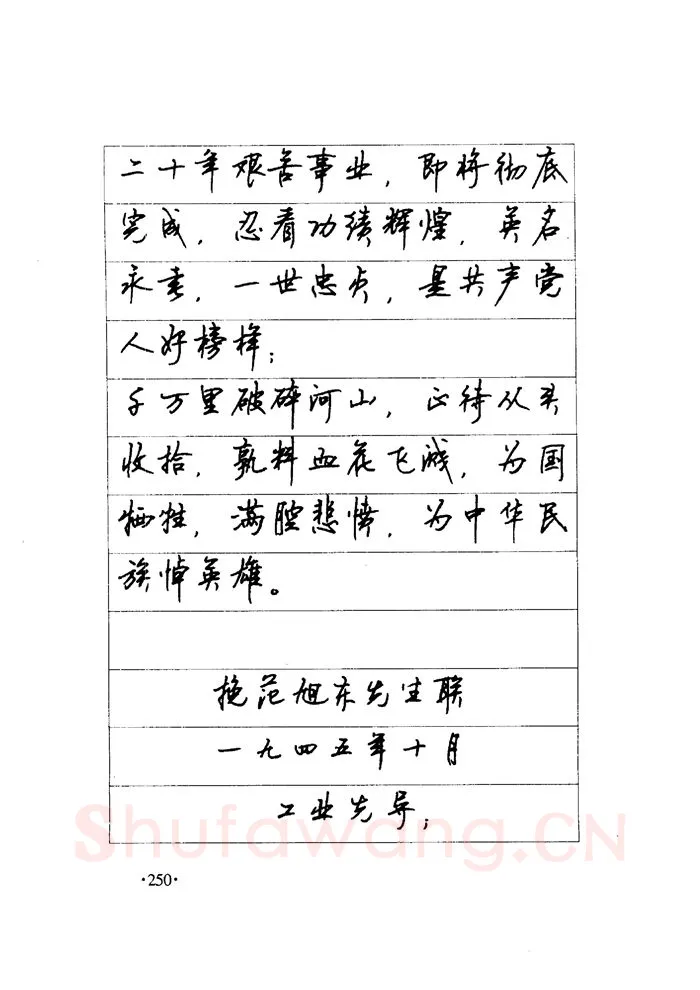 二十年艰苦事业，即将彻底
完成，忍看功绩辉煌，英名
永垂，一世忠贞，是共产党
人好榜样；
千万里破碎河山，正待从头
收拾，孰料血花飞溅，为国
牺牲，满腔悲愤，为中华民
族悼英雄。
挽范旭东先生联
一九四五年十月
工业先导；
Shufawang.CN
·250·